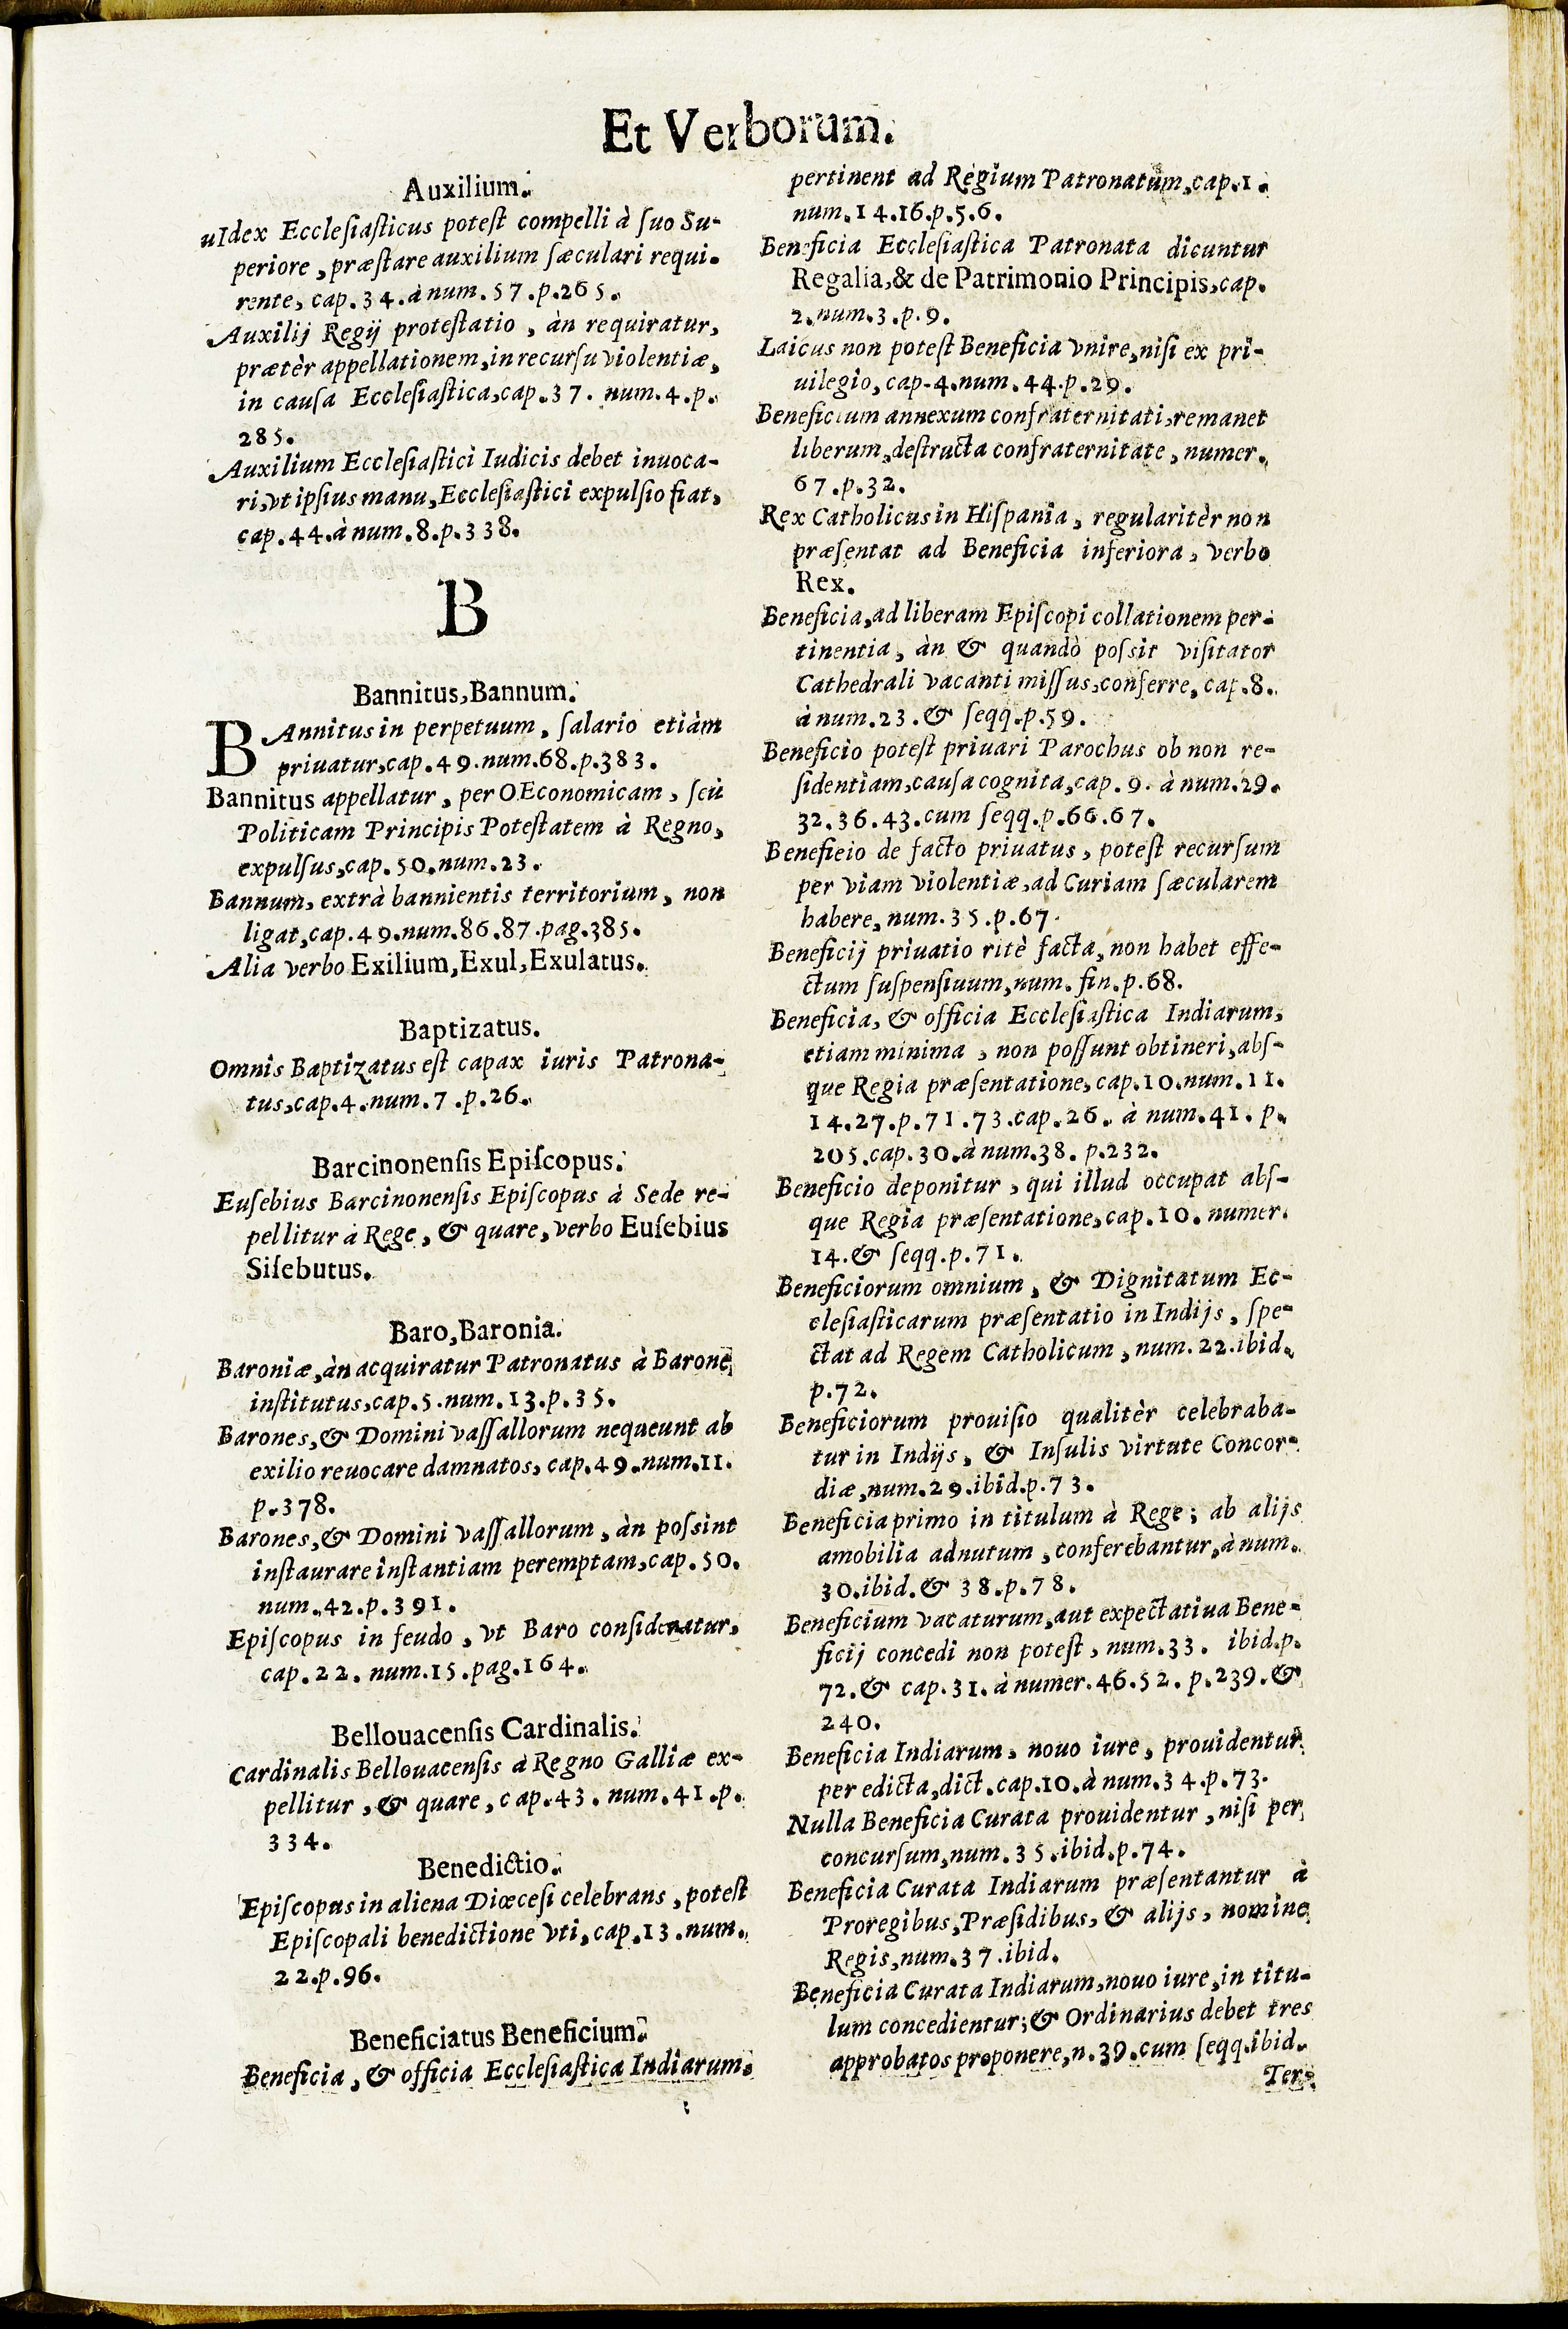 Et Verborum.
Auxilium.
uIdex Eccleſiaſticus poteſt compelli à ſuo Su-
periore, præſtare auxilium ſæculari requi-
rente, cap. 34. à num. 57. p. 265.
Auxilij Regij proteſtatio, àn requiratur,
prætèr appellationem, in recurſu violentiæ,
in cauſa Eccleſiaſtica, cap. 37. num. 4. p.
285.
Auxilium Eccleſiaſtici Iudicis debet inuoca-
ri, vt ipſius manu, Eccleſiaſtici expulſio fiat,
cap. 44. à num. 8. p. 338.
B
Bannitus, Bannum.
BAnnitus in perpetuum, ſalario etiàm
priuatur, cap. 49. num. 68. p. 383.
Bannitus appellatur, per OEconomicam, ſeù
Politicam Principis Poteſtatem à Regno,
expulſus, cap. 50. num. 23.
Bannum, extrà bannientis territorium, non
ligat, cap. 49. num. 86. 87. pag. 385.
Alia verbo Exilium, Exul, Exulatus.
Baptizatus.
Omnis Baptizatus eſt capax iuris Patrona-
tus, cap. 4. num. 7. p. 26.
Barcinonenſis Epiſcopus.
Euſebius Barcinonenſis Epiſcopus à Sede re-
pellitur à Rege, & quare, verbo Euſebius
Siſebutus.
Baro, Baronia.
Baroniæ, àn acquiratur Patronatus à Barone
inſtitutus, cap. 5. num. 13. p. 35.
Barones, & Domini vaſſallorum nequeunt ab
exilio reuocare damnatos, cap. 49. num. 11.
p. 378.
Barones, & Domini vaſſallorum, àn poſsint
inſtaurare inſtantiam peremptam, cap. 50.
num. 42. p. 391.
Epiſcopus in feudo, vt Baro conſideratur,
cap. 22. num. 15. pag. 164.
Bellouacenſis Cardinalis.
Cardinalis Bellouacenſis à Regno Galliæ ex-
pellitur, & quare, cap. 43. num. 41. p.
334.
Benedictio.
Epiſcopus in aliena Diœceſi celebrans, poteſt
Epiſcopali benedictione vti, cap. 13. num.
22. p. 96.
Beneficiatus Beneficium.
Beneficia, & officia Eccleſiaſtica Indiarum
pertinent ad Regium Patronatum, cap. 1.
num. 14. 16. p. 5. 6.
Beneficia Eccleſiaſtica Patronata dicuntur
Regalia, & de Patrimonio Principis, cap.
2. num. 3. p. 9.
Laicus non poteſt Beneficia vnire, niſi ex pri-
uilegio, cap. 4. num. 44. p. 29.
Beneficium annexum confraternitati, remanet
liberum, deſtructa confraternitate, numer.
67. p. 32.
Rex Catholicus in Hiſpania, regularitèr non
præſentat ad Beneficia inferiora, verbo
Rex.
Beneficia, ad liberam Epiſcopi collationem per-
tinentia, àn & quandò poſsit viſitator
Cathedrali vacanti miſſus, conferre, cap. 8.
à num. 23. & ſeqq. p. 59.
Beneficio poteſt priuari Parochus ob non re-
ſidentiam, cauſa cognita, cap. 9. à num. 29.
32. 36. 43. cum ſeqq. p. 66. 67.
Benefieio de facto priuatus, poteſt recurſum
per viam violentiæ, ad Curiam ſæcularem
habere, num. 35. p. 67.
Beneficij priuatio ritè facta, non habet effe-
ctum ſuſpenſiuum, num. fin. p. 68.
Beneficia, & officia Eccleſiaſtica Indiarum,
etiam minima, non poſſunt obtineri, abſ-
que Regia præſentatione, cap. 10. num. 11.
14. 27. p. 71. 73. cap. 26. à num. 41. p.
205. cap. 30. à num. 38. p. 232.
Beneficio deponitur, qui illud occupat abſ-
que Regia præſentatione, cap. 10. numer.
14. & ſeqq. p. 71.
Beneficiorum omnium, & Dignitatum Ec-
cleſiaſticarum præſentatio in Indijs, ſpe-
ctat ad Regem Catholicum, num. 22. ibid.
p. 72.
Beneficiorum prouiſio qualitèr celebraba-
tur in Indijs, & Inſulis virtute Concor-
diæ, num. 29. ibid. p. 73.
Beneficia primo in titulum à Rege; ab alijs
amobilia adnutum, conferebantur, à num.
30. ibid. & 38. p. 78.
Beneficium vacaturum, aut expectatiua Bene-
ficij concedi non poteſt, num. 33. ibid. p.
72. & cap. 31. à numer. 46. 52. p. 239. &
240.
Beneficia Indiarum, nouo iure, prouidentur
per edicta, dict. cap. 10. à num. 34. p. 73.
Nulla Beneficia Curata prouidentur, niſi per
concurſum, num. 35. ibid. p. 74.
Beneficia Curata Indiarum præſentantur à
Proregibus, Præſidibus, & alijs, nomine
Regis, num. 37. ibid.
Beneficia Curata Indiarum, nouo iure, in titu-
lum concedientur; & Ordinarius debet tres
approbatos proponere, n. 39. cum ſeqq. ibid.
Ter-